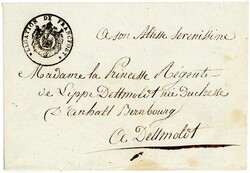 LEGATION DE FRANCFORT
a son Altesse serenissime
Madame la Princesse Régente
de Lippe Dettmoldt née Duchesse
d'anhalt Bernbourg
a Dettmoldt